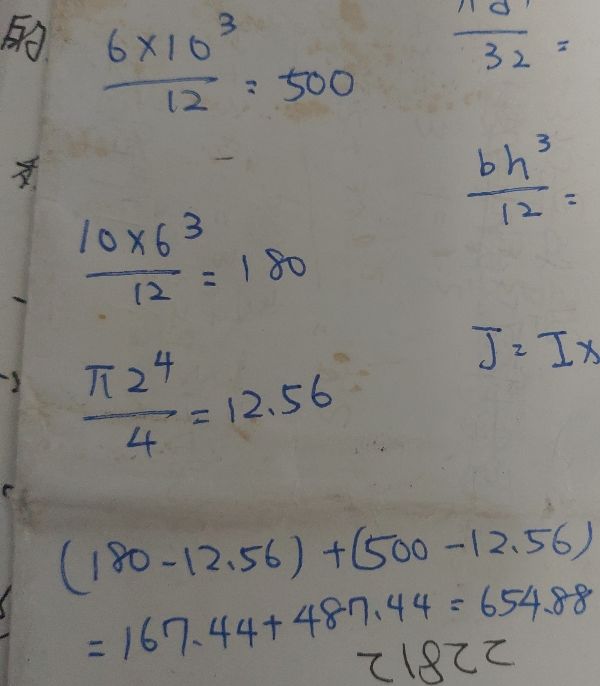 的
6×10³/12 = 500
/32 =
bh³/12 =
10×6³/12 = 180
J = Ix
π2⁴/4 = 12.56
(180-12.56)+(500-12.56)
=167.44+487.44=654.88
22812